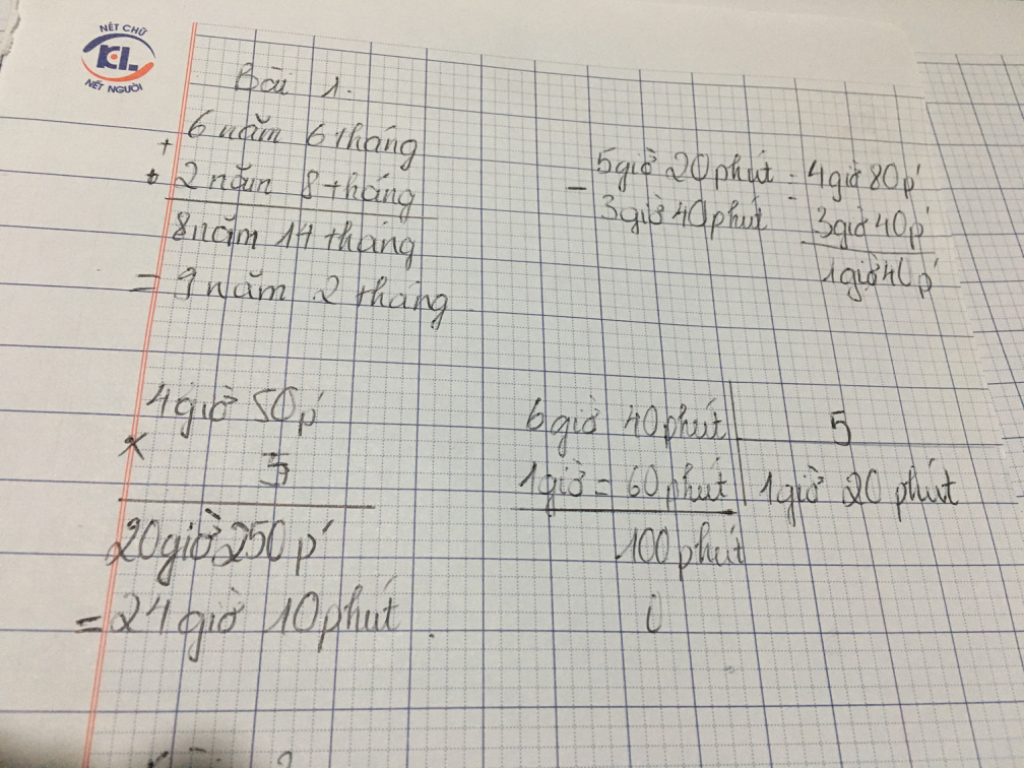 NÉT CHỮ
KL
NÉT NGƯỜI
Bài 1.
+ 6 năm 6 tháng
2 năm 8 tháng
8 năm 14 tháng
= 9 năm 2 tháng
- 5giờ 20 phút = 4giờ 80p'
3giờ 40 phút - 3giờ 40p'
1giờ 40p'
4giờ 50p'
x 5
20giờ 250p'
= 24 giờ 10 phút.
6 giờ 40 phút 5
1giờ = 60 phút 1giờ 20 phút
100 phút
0